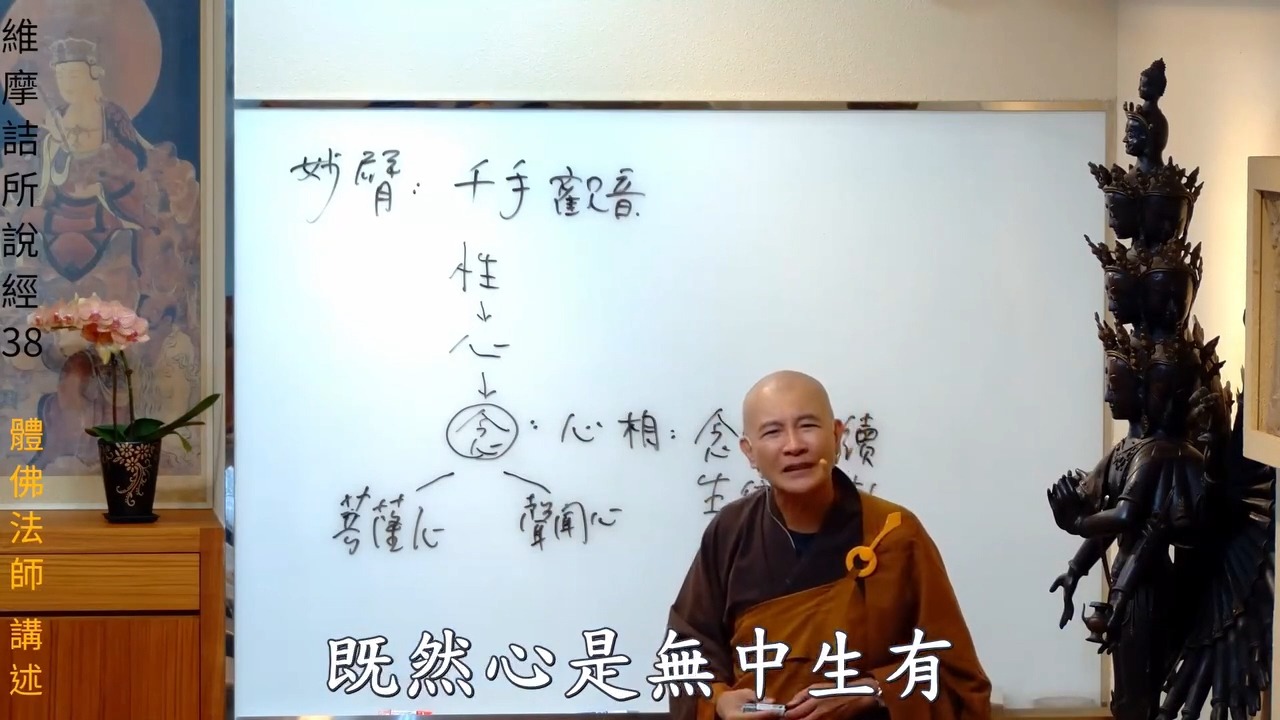 維摩詰所說經38
體佛法師 講述
妙臂：千手觀音
性
↓
心
↓
念：心相：念 續
菩薩心 聲聞心 生
既然心是無中生有